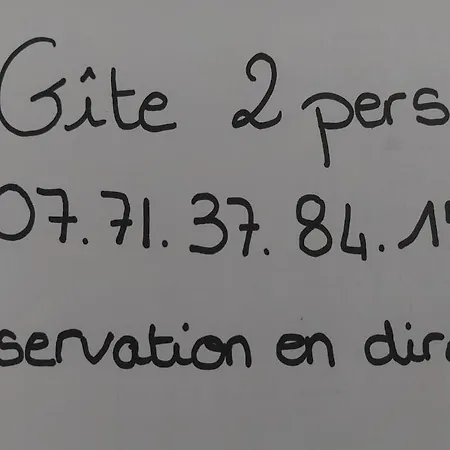 Gîte 2 pers
07.71.37.84.1
servation en dir